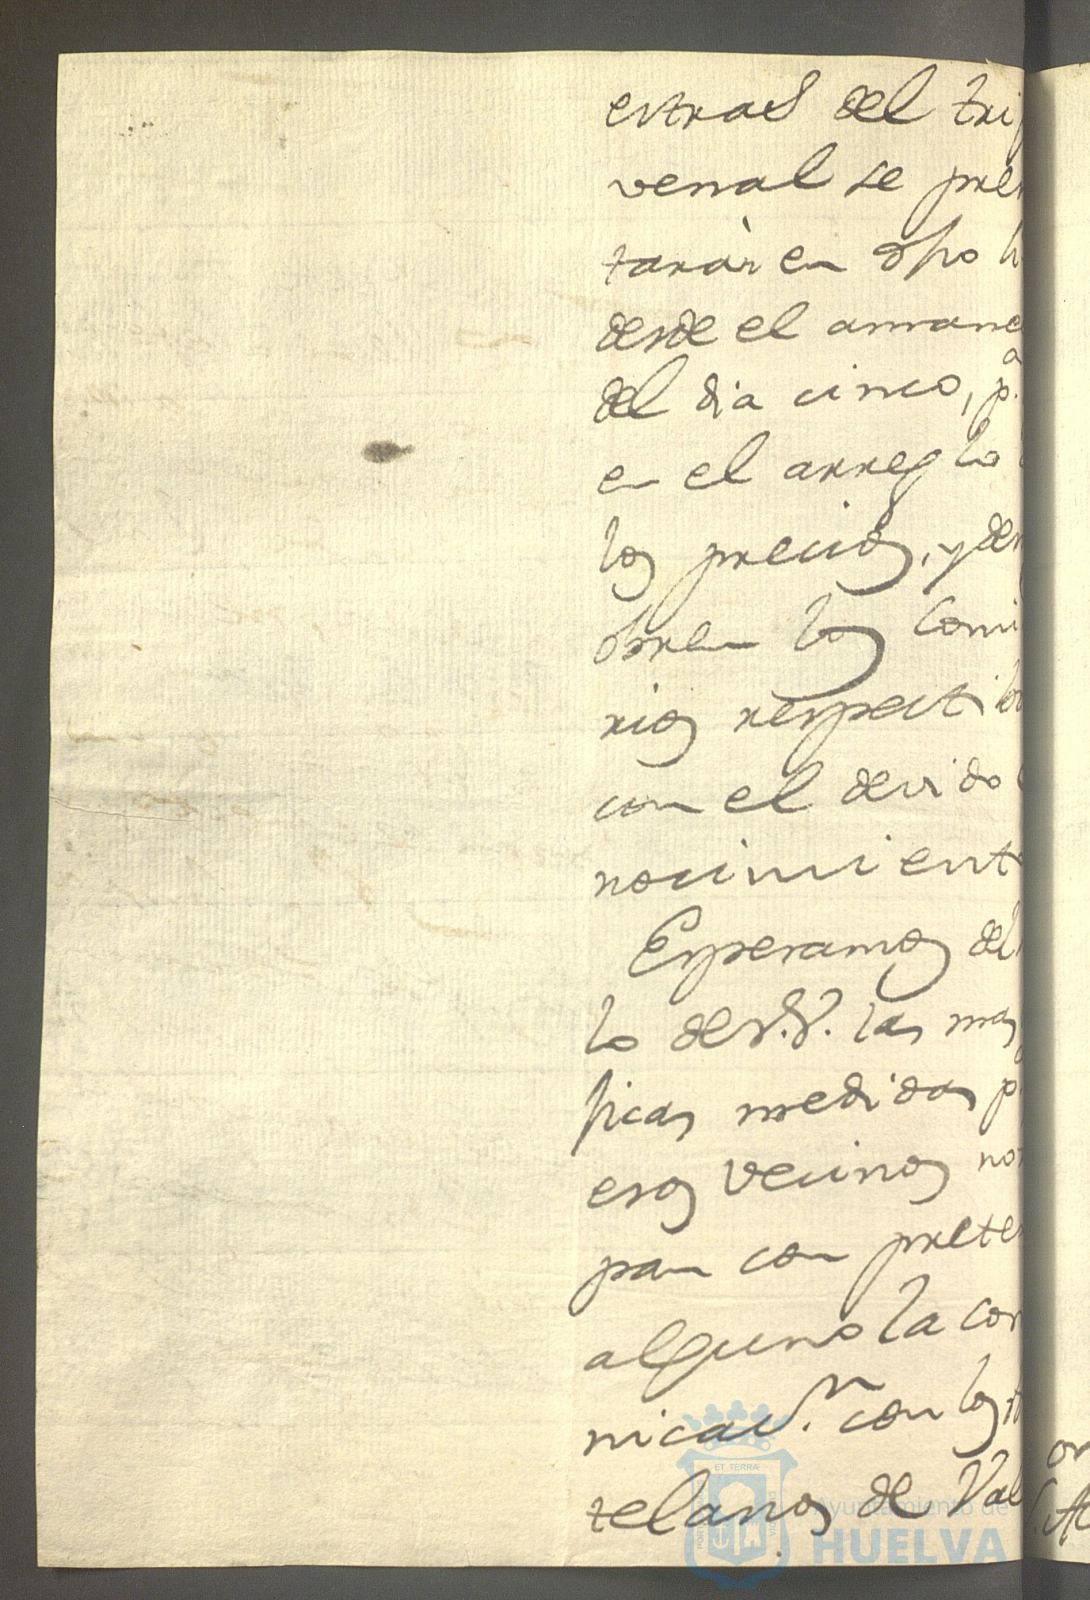 estras del tri
venal se pre
tarár en dho h
desde el amane
del dia cinco, p.a
en el arreglo
los precios, y de
obren los Comi
rios respectibo
con el devido
nocimiento
Esperamos del
lo de V.S. las mas
ficas medidas p
esos vecinos no
pan con prete
alguno la com
nicac.n con los
telanos de Val
ET TERRÆ
Ayuntamiento de
HUELVA